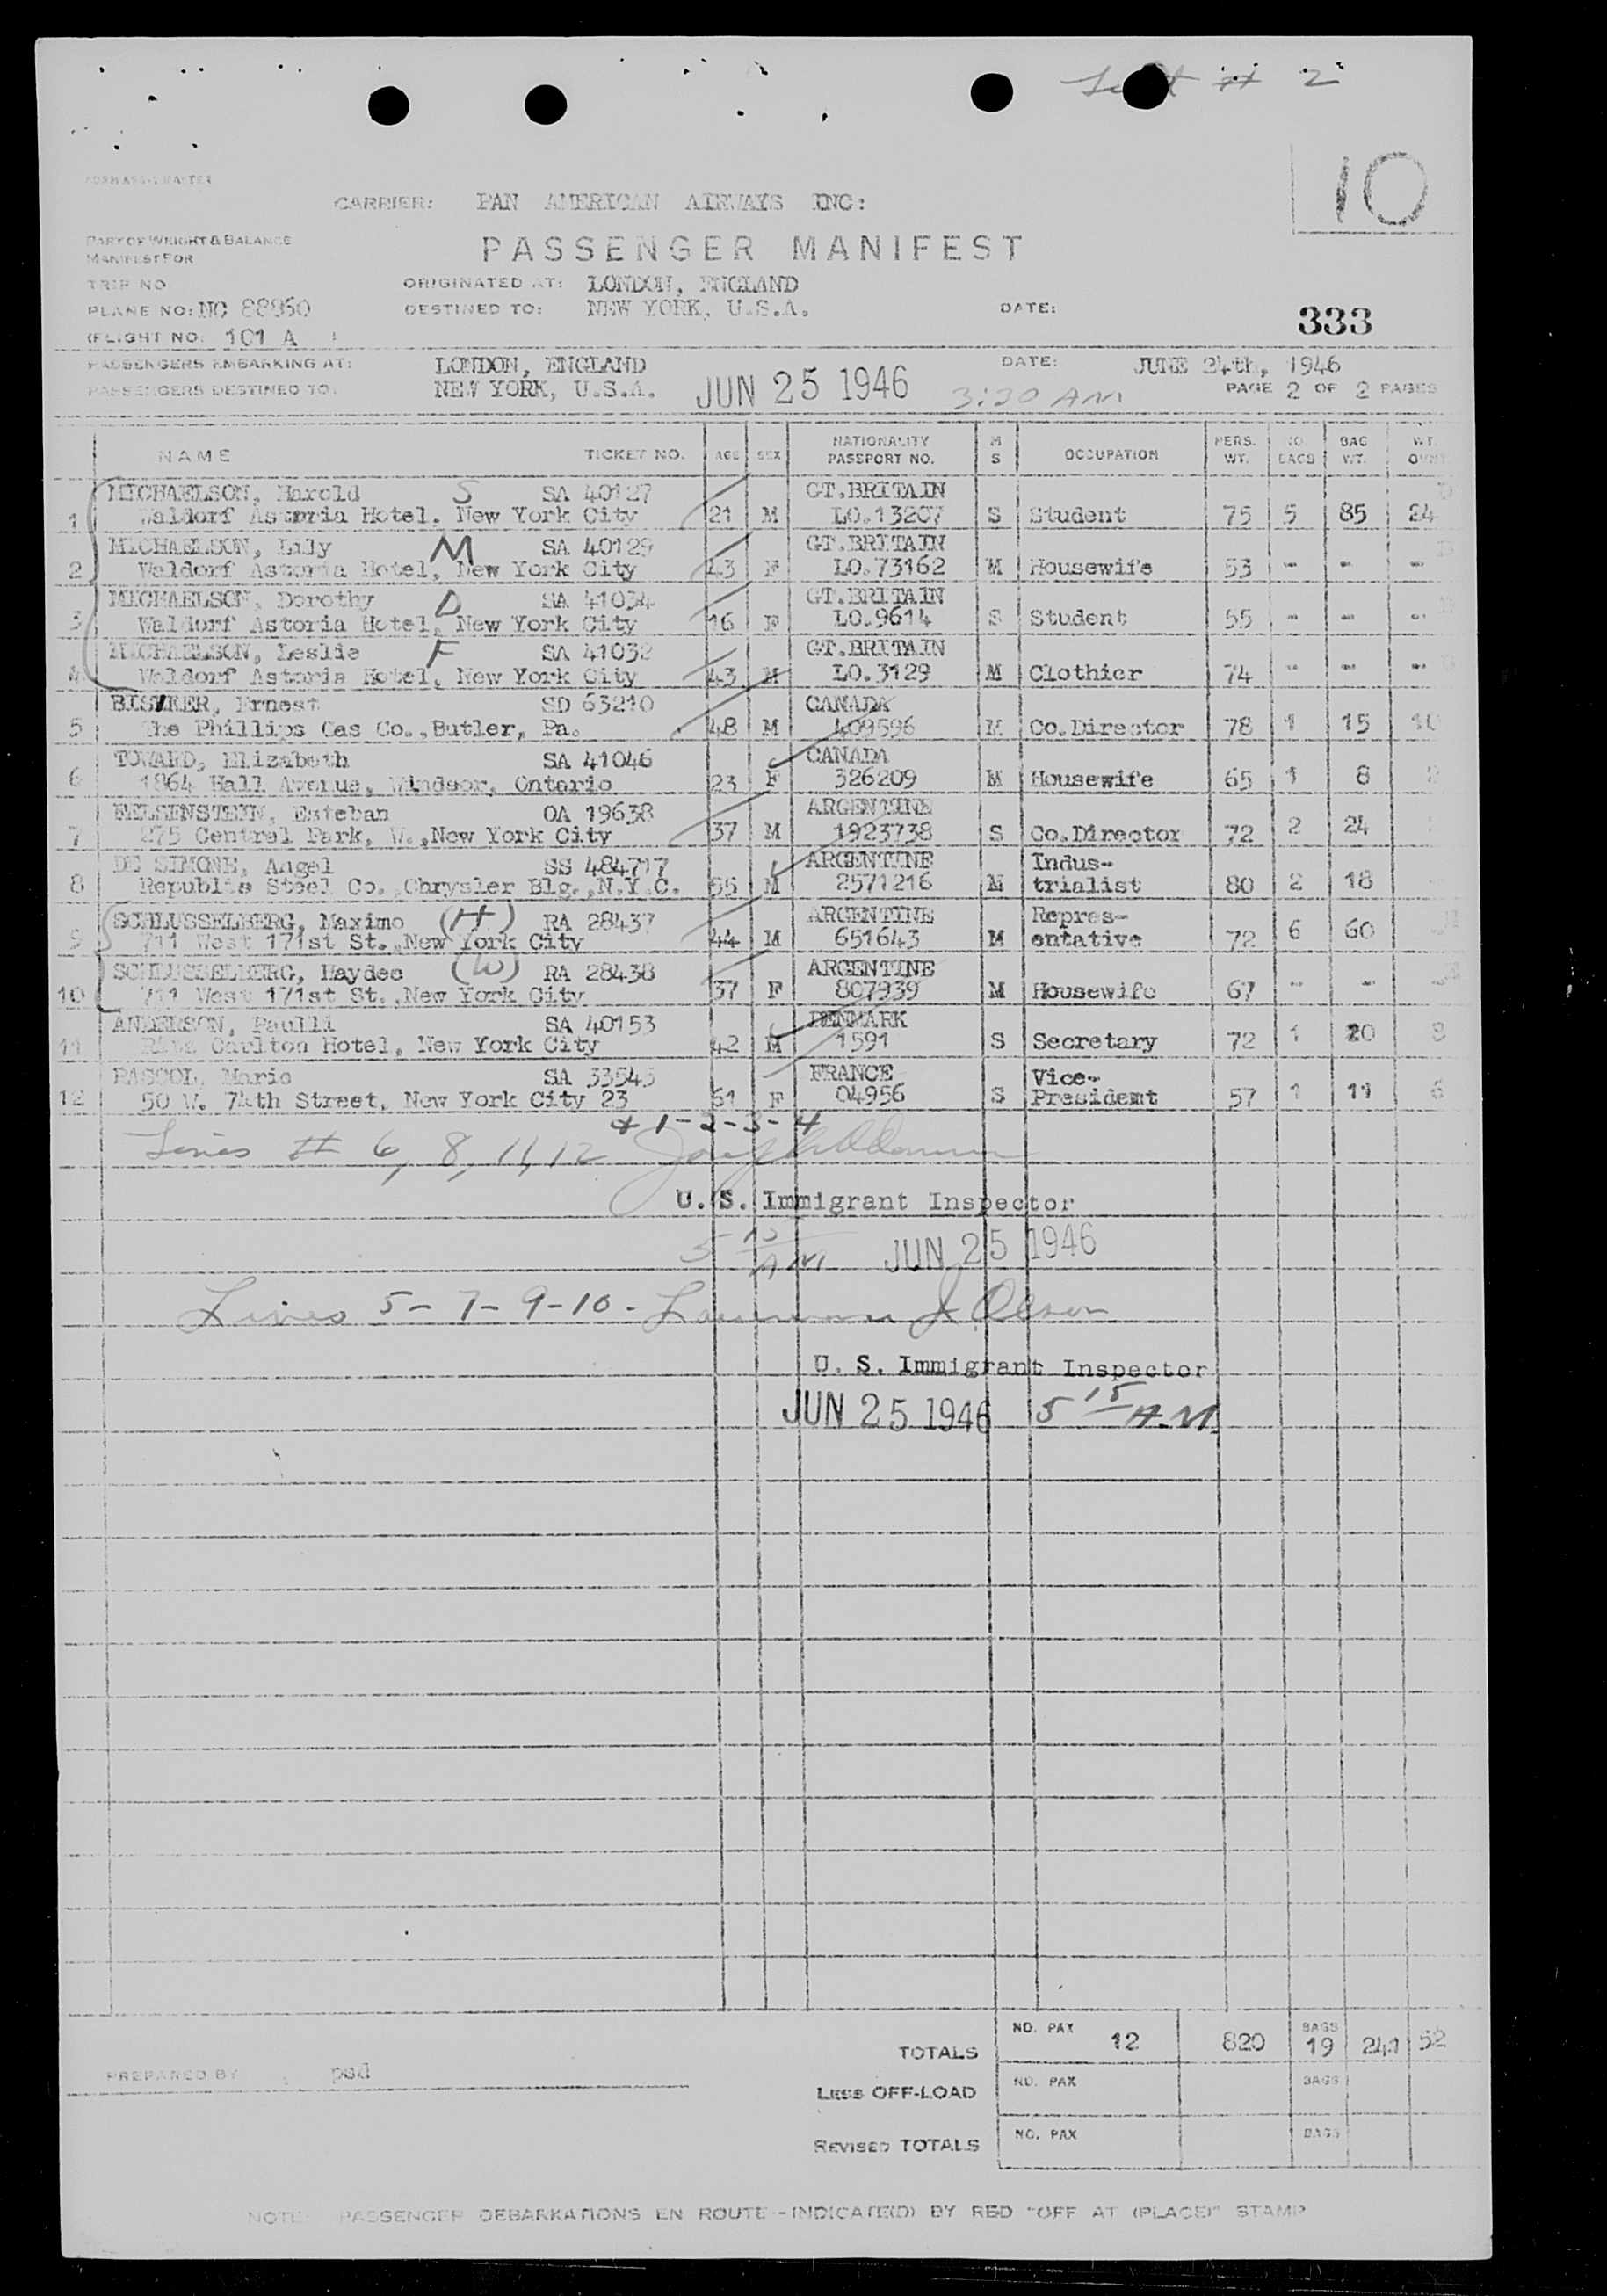 # 2
10
CARRIER: PAN AMERICAN AIRWAYS INC:
PART OF WEIGHT & BALANCE
MANIFEST FOR
PASSENGER MANIFEST
TRIP NO
ORIGINATED AT: LONDON, ENGLAND
PLANE NO: NC 88860
DESTINED TO: NEW YORK, U.S.A.
DATE:
333
(FLIGHT NO. 101 A
PASSENGERS EMBARKING AT: LONDON, ENGLAND
DATE: JUNE 24th, 1946
PASSENGERS DESTINED TO: NEW YORK, U.S.A. JUN 25 1946 3:30 AM PAGE 2 OF 2 PAGES
NAME TICKET NO. AGE SEX NATIONALITY PASSPORT NO. M S OCCUPATION PERS. WT. NO. BAGS BAG WT. WT.
MICHAELSON, Harold S SA 40127 GT.BRITAIN
1 Waldorf Astoria Hotel. New York City 21 M LO.13207 S Student 75 5 85 24
MICHAELSON, Lily M SA 40129 GT.BRITAIN
2 Waldorf Astoria Hotel, New York City 43 F LO.73162 M Housewife 53 - - -
MICHAELSON, Dorothy D SA 41034 GT.BRITAIN
3 Waldorf Astoria Hotel, New York City 16 F LO.9614 S Student 55 - - -
MICHAELSON, Leslie F SA 41032 GT.BRITAIN
4 Waldorf Astoria Hotel, New York City 43 M LO.3129 M Clothier 74 - - -
Ernest SD 63210 CANADA
5 The Phillips Gas Co., Butler, Pa. 48 M 409596 M Co.Director 78 1 15 10
TOWARD, Elizabeth SA 41046 CANADA
6 1864 Hall Avenue, Windsor, Ontario 23 F 326209 M Housewife 65 1 8
Esteban OA 19638 ARGENTINE
7 275 Central Park, W.,New York City 37 M 1923738 S Co.Director 72 2 24
DE SIMONE, Angel SS 484717 ARGENTINE Indus-
8 Republic Steel Co. Chrysler Blg.,N.Y.C. 55 M 2571216 M trialist 80 2 18
SCHLUSSELBERG, Maximo (H) RA 28437 ARGENTINE Repres-
9 711 West 171st St., New York City 44 M 651643 M entative 72 6 60
SCHLUSSELBERG, Haydee (W) RA 28438 ARGENTINE
10 711 West 171st St., New York City 37 F 807939 M Housewife 67 - - -
ANDERSON, Paulli SA 40153 DENMARK
11 Ritz Carlton Hotel, New York City 42 M 1591 S Secretary 72 1 20 8
Marie SA 33545 FRANCE Vice-
12 50 W. 74th Street, New York City 23 61 F 04956 S President 57 1 11 6
+ 1-2-3-4
Lines # 6, 8, 11, 12
U. S. Immigrant Inspector
5 15 AM JUN 25 1946
Lines 5-7-9-10- Lawrence J. Olson
U. S. Immigrant Inspector
JUN 25 1946 5 15 A.M.
TOTALS NO. PAX 12 820 BAGS 19 241 52
PREPARED BY
LESS OFF-LOAD NO. PAX BAGS
REVISED TOTALS NO. PAX BAGS
NOTE: PASSENGER DEBARKATIONS EN ROUTE - INDICATE(D) BY RED "OFF AT (PLACE)" STAMP